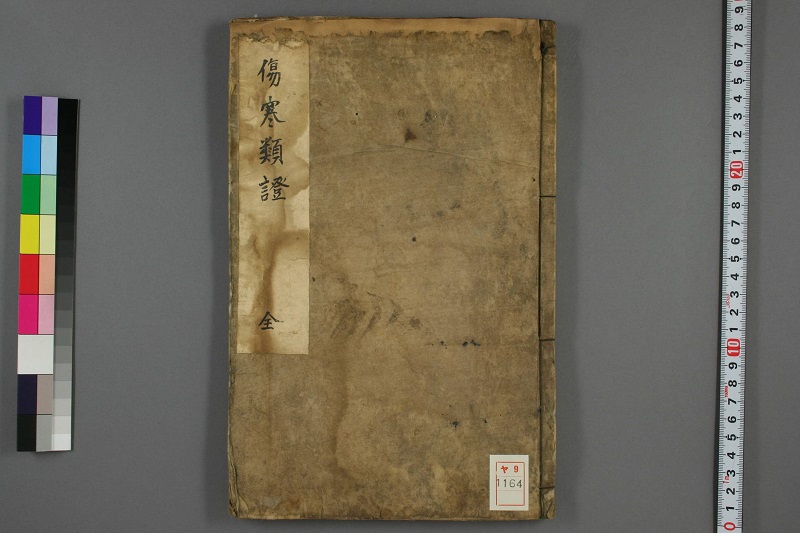 傷寒類證
全
ヤ 9
1164
9
8
7
6
5
4
3
2
1
20
9
8
7
6
5
4
3
2
1
10
9
8
7
6
5
4
3
2
1
0